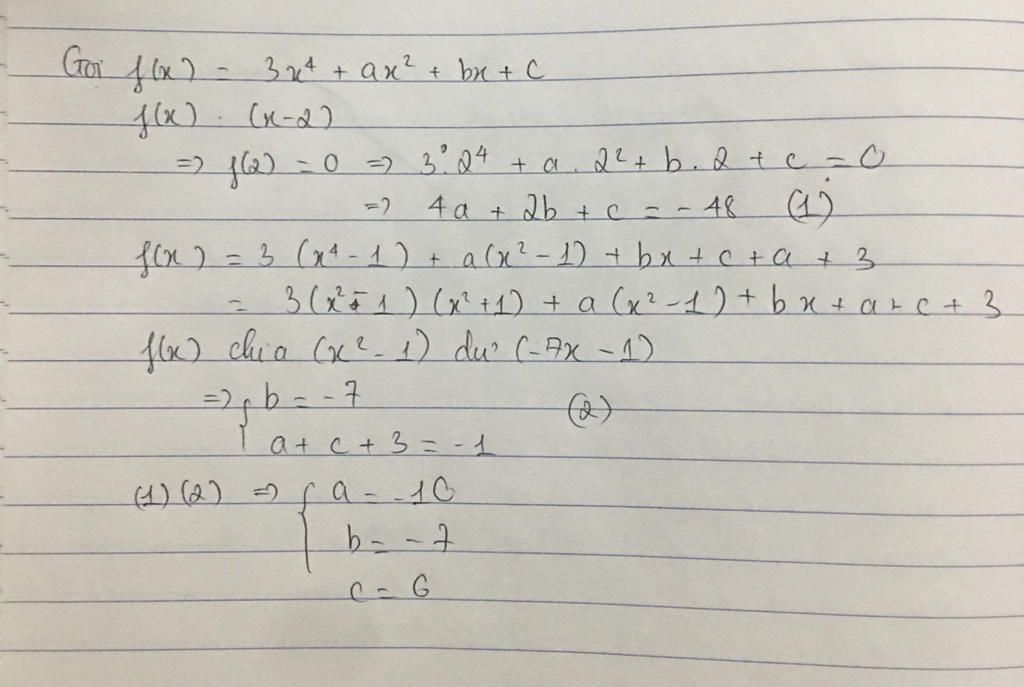 Gọi f(x) = 3x⁴ + ax² + bx + c
f(x) ⋮ (x-2)
=> f(2) = 0 => 3.2⁴ + a.2² + b.2 + c = 0
=> 4a + 2b + c = -48 (1)
f(x) = 3(x⁴ - 1) + a(x² - 1) + bx + c + a + 3
= 3(x² - 1)(x² + 1) + a(x² - 1) + bx + a + c + 3
f(x) chia (x² - 1) dư (-7x - 1)
=> { b = -7 (2)
a + c + 3 = -1
(1)(2) => { a = -10
b = -7
c = 6